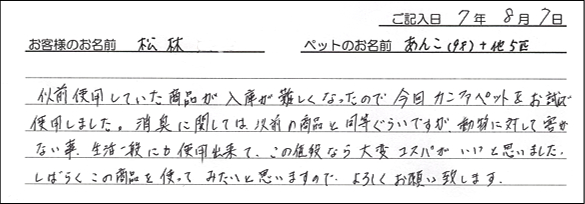 ご記入日 7年 8月 7日
お客様のお名前 松林 ペットのお名前 あんこ(9才)+他5匹
似前使用していた商品が入庫が難しくなったので今回カンファペットをお試で
使用しました。消臭に関しては以前の商品と同等ぐらいですが動物に対して害が
ない事、生活一般にも使用出来て、この値段なら大変コスパがいいと思いました。
しばらくこの商品を使ってみたいと思いますので、よろしくお願い致します。